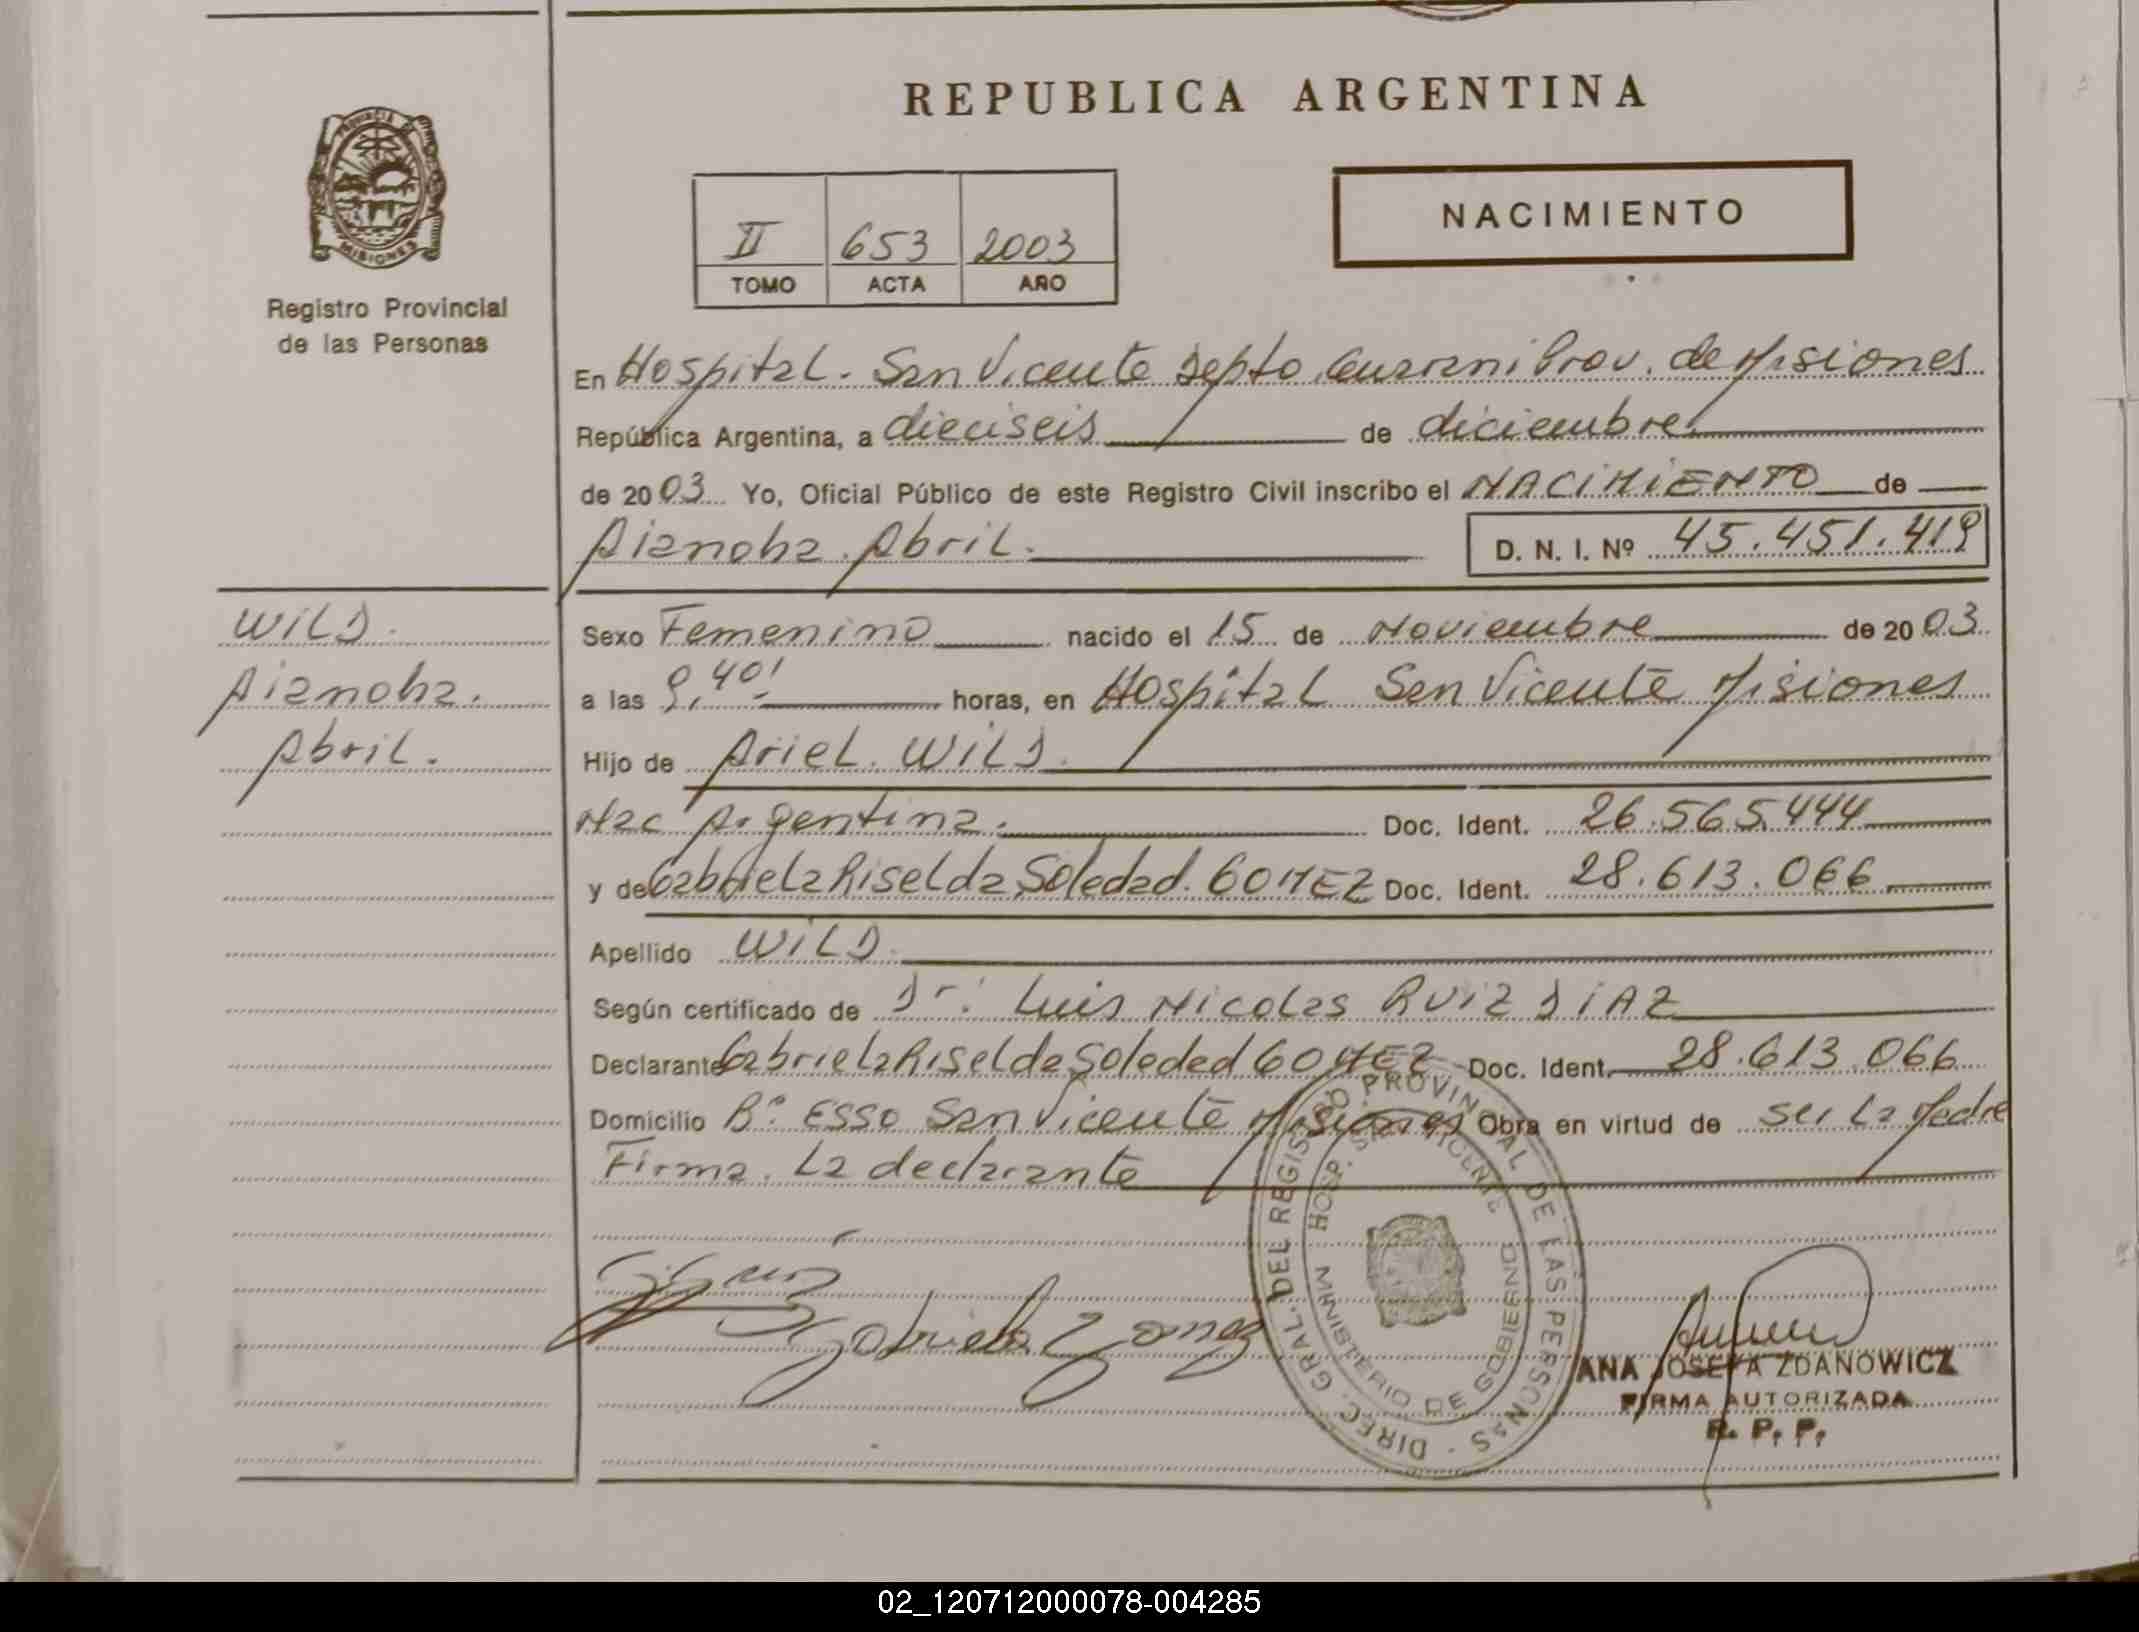 REPUBLICA ARGENTINA
PROVINCIA DE
MISIONES
Registro Provincial
de las Personas
II 653 2003
TOMO ACTA AÑO
NACIMIENTO
En Hospital. San Vicente Depto Guarani Prov. de Misiones
República Argentina, a dieciseis de diciembre
de 2003 Yo, Oficial Público de este Registro Civil inscribo el NACIMIENTO de
Aianoha. Abril.
D. N. I. Nº 45.451.419
WILD.
Aianoha.
Abril.
Sexo Femenino nacido el 15 de Noviembre de 2003
a las 9,40' horas, en Hospital San Vicente Misiones
Hijo de Ariel. WILD.
Nac Argentina. Doc. Ident. 26.565.444
y de Gabriela Riselda Soledad. GOMEZ Doc. Ident. 28.613.066
Apellido WILD.
Según certificado de Dr. Luis Nicolas RUIZ DIAZ
Declarante Gabriela Riselda Soledad GOMEZ Doc. Ident. 28.613.066
Domicilio Bº ESSO San Vicente Misiones Obra en virtud de ser La Madre
Firma. La declarante
Gabriela Gomez
DIREC. GRAL. DEL REGISTRO PROVINCIAL DE LAS PERSONAS
HOSP. SAN VICENTE
MINISTERIO DE GOBIERNO
ANA JOSEFA ZDANOWICZ
FIRMA AUTORIZADA
R. P. P.
02_120712000078-004285